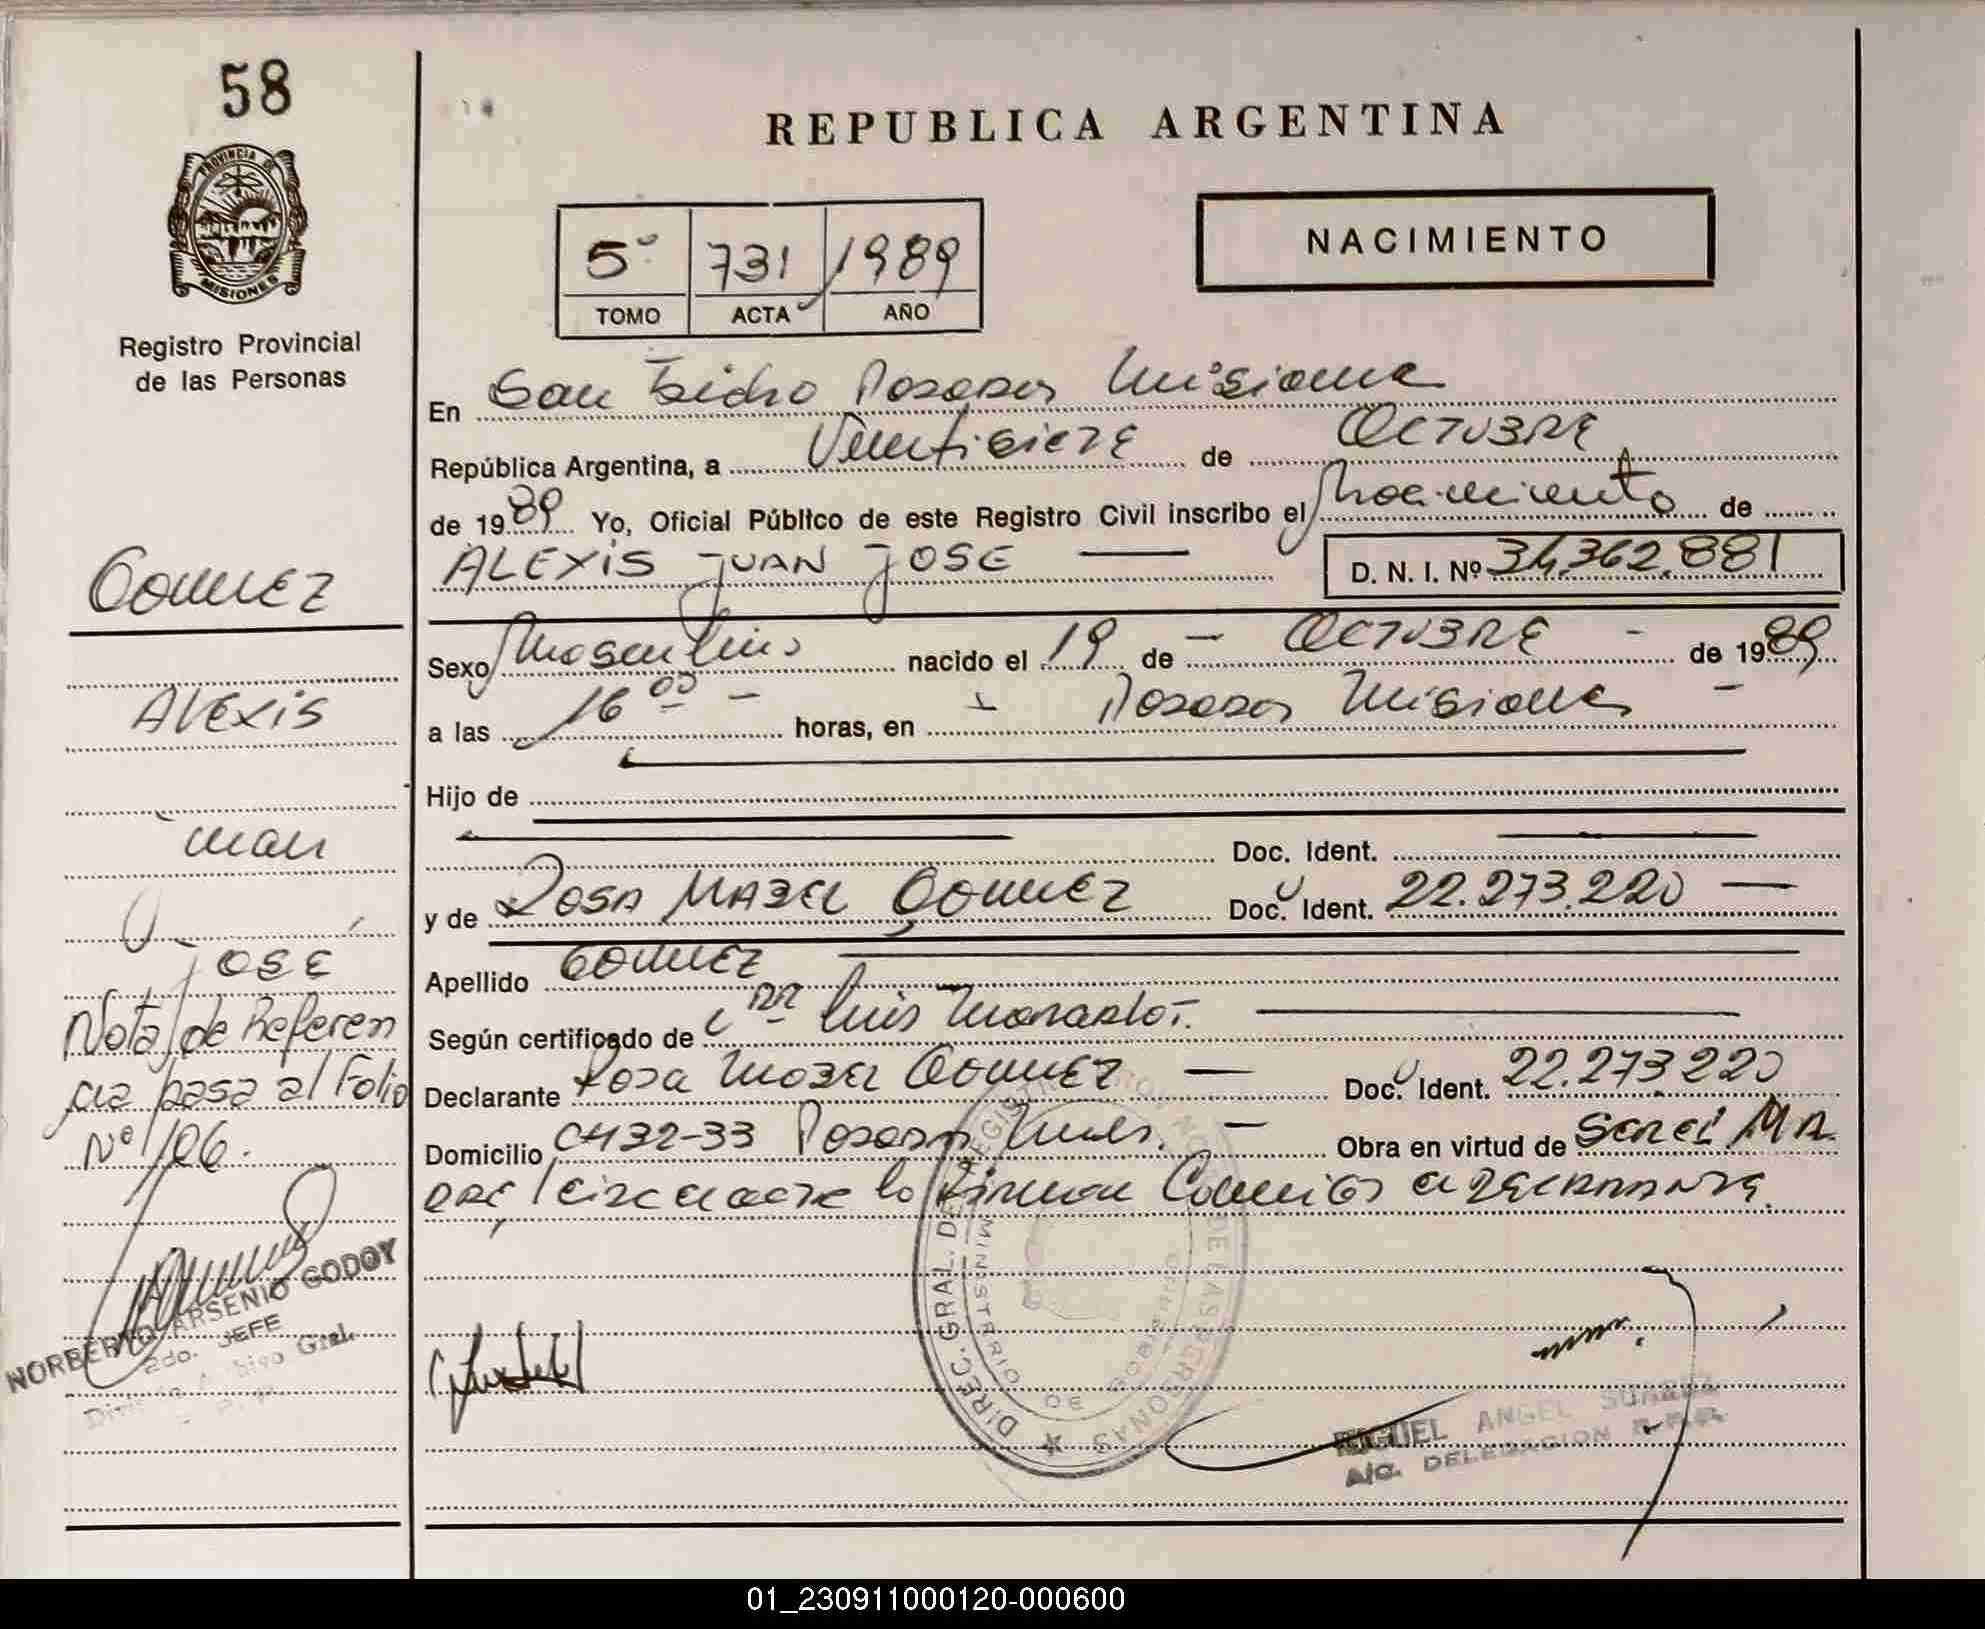 58
REPUBLICA ARGENTINA
PROVINCIA DE MISIONES
Registro Provincial
de las Personas
5º 731 1989
TOMO ACTA AÑO
NACIMIENTO
En San Isidro Posadas Misiones
República Argentina, a Veintisiete de OCTUBRE
de 1989 Yo, Oficial Público de este Registro Civil inscribo el Nacimiento de
ALEXIS JUAN JOSE D. N. I. Nº 34.362.881
Sexo Masculino nacido el 19 de OCTUBRE de 1989
a las 16 00 horas, en Posadas Misiones
Hijo de
Doc. Ident.
y de ROSA MABEL GOMEZ Doc. Ident. 22.273.220
Apellido GOMEZ
Según certificado de Luis
Declarante Rosa Mabel GOMEZ Doc. Ident. 22.273220
Domicilio CH 32-33 Posadas Obra en virtud de
lo Firman Conmigo
GOMEZ
ALEXIS
Juan
JOSÉ
Nota de Referen
cia pasa al Folio
Nº 106.
NORBERTO ARSENIO GODOY
2do. JEFE
Gral.
DIREC. GRAL. DE
DE LAS PERSONAS
MINISTERIO DE GOBIERNO
MIGUEL ANGEL SUAREZ
A/C. DELEGACION
01_230911000120-000600